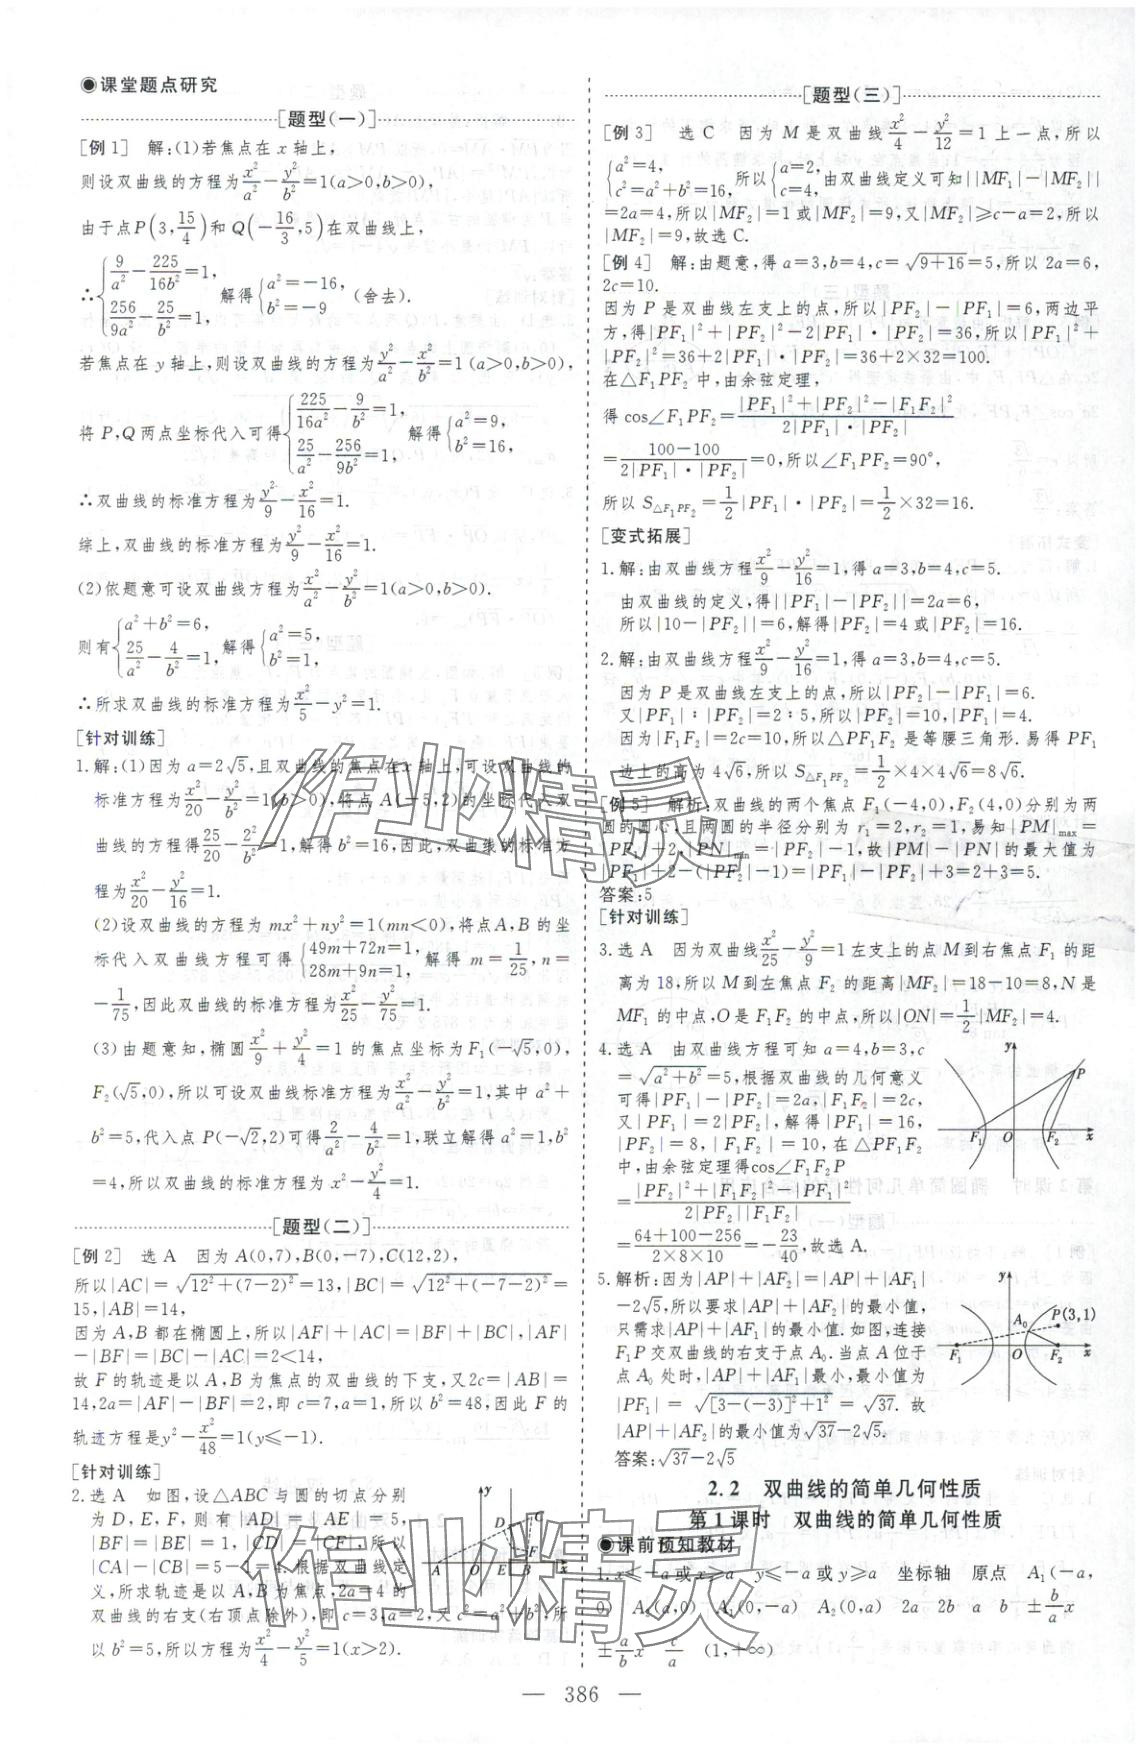 ◉课堂题点研究
[题型(一)]
[例1] 解:(1)若焦点在 x 轴上,
则设双曲线的方程为x²/a²－y²/b²＝1(a>0,b>0),
由于点P(3,15/4)和Q(－16/3,5)在双曲线上,
∴{9/a²－225/16b²＝1, 256/9a²－25/b²＝1, 解得{a²＝－16, b²＝－9 (舍去).
若焦点在 y 轴上,则设双曲线的方程为y²/a²－x²/b²＝1 (a>0,b>0),
将 P,Q 两点坐标代入可得{225/16a²－9/b²＝1, 25/a²－256/9b²＝1, 解得{a²＝9, b²＝16,
∴双曲线的标准方程为y²/9－x²/16＝1.
综上,双曲线的标准方程为y²/9－x²/16＝1.
(2)依题意可设双曲线方程为x²/a²－y²/b²＝1(a>0,b>0).
则有{a²＋b²＝6, 25/a²－4/b²＝1, 解得{a²＝5, b²＝1,
∴所求双曲线的标准方程为x²/5－y²＝1.
[针对训练]
1.解:(1)因为 a＝2√5,且双曲线的焦点在 x 轴上,可设双曲线的
标准方程为x²/20－y²/b²＝1(b>0),将点 A(－5,2)的坐标代入双
曲线的方程得25/20－2²/b²＝1,解得 b²＝16,因此,双曲线的标准方
程为x²/20－y²/16＝1.
(2)设双曲线的方程为 mx²＋ny²＝1(mn<0),将点A,B 的坐
标代入双曲线方程可得{49m＋72n＝1, 28m＋9n＝1, 解得 m＝1/25,n＝
－1/75,因此双曲线的标准方程为x²/25－y²/75＝1.
(3)由题意知,椭圆x²/9＋y²/4＝1 的焦点坐标为 F₁(－√5,0),
F₂(√5,0),所以可设双曲线标准方程为x²/a²－y²/b²＝1,其中 a²＋
b²＝5,代入点 P(－√2,2)可得2/a²－4/b²＝1,联立解得 a²＝1,b²
＝4,所以双曲线的标准方程为 x²－y²/4＝1.
[题型(二)]
[例2] 选 A 因为 A(0,7),B(0,－7),C(12,2),
所以|AC|＝√(12²＋(7－2)²)＝13,|BC|＝√(12²＋(－7－2)²)＝
15,|AB|＝14,
因为 A,B 都在椭圆上,所以|AF|＋|AC|＝|BF|＋|BC|,|AF|
－|BF|＝|BC|－|AC|＝2<14,
故 F 的轨迹是以 A,B 为焦点的双曲线的下支,又2c＝|AB|＝
14,2a＝|AF|－|BF|＝2,即 c＝7,a＝1,所以 b²＝48,因此 F 的
轨迹方程是y²－x²/48＝1(y≤－1).
[针对训练]
2.选 A 如图,设△ABC 与圆的切点分别
为 D,E,F,则有|AD|＝|AE|＝5,
|BF|＝|BE|＝1,|CD|＝|CF|,所以
|CA|－|CB|＝5－1＝4.根据双曲线定
义,所求轨迹是以 A,B 为焦点,2a＝4 的
双曲线的右支(右顶点除外),即 c＝3,a＝2,又 c²＝a²＋b²,所
以 b²＝5,所以方程为x²/4－y²/5＝1(x>2).
y D C F A O E B x
[题型(三)]
[例3] 选 C 因为 M 是双曲线x²/4－y²/12＝1 上一点,所以
{a²＝4, c²＝a²＋b²＝16, 所以{a＝2, c＝4, 由双曲线定义可知||MF₁|－|MF₂||
＝2a＝4,所以|MF₂|＝1或|MF₂|＝9,又|MF₂|≥c－a＝2,所以
|MF₂|＝9,故选 C.
[例4] 解:由题意,得 a＝3,b＝4,c＝√(9＋16)＝5,所以 2a＝6,
2c＝10.
因为 P 是双曲线左支上的点,所以|PF₂|－|PF₁|＝6,两边平
方,得|PF₁|²＋|PF₂|²－2|PF₁|·|PF₂|＝36,所以|PF₁|²＋
|PF₂|²＝36＋2|PF₁|·|PF₂|＝36＋2×32＝100.
在△F₁PF₂ 中,由余弦定理,
得 cos∠F₁PF₂＝(|PF₁|²＋|PF₂|²－|F₁F₂|²)/(2|PF₁|·|PF₂|)
＝(100－100)/(2|PF₁|·|PF₂|)＝0,所以∠F₁PF₂＝90°,
所以 S△F₁PF₂＝1/2|PF₁|·|PF₂|＝1/2×32＝16.
[变式拓展]
1.解:由双曲线方程x²/9－y²/16＝1,得 a＝3,b＝4,c＝5.
由双曲线的定义,得||PF₁|－|PF₂||＝2a＝6,
所以|10－|PF₂||＝6,解得|PF₂|＝4 或|PF₂|＝16.
2.解:由双曲线方程x²/9－y²/16＝1,得 a＝3,b＝4,c＝5.
因为 P 是双曲线左支上的点,所以|PF₂|－|PF₁|＝6.
又|PF₁|∶|PF₂|＝2∶5,所以|PF₂|＝10,|PF₁|＝4.
因为|F₁F₂|＝2c＝10,所以△PF₁F₂ 是等腰三角形.易得 PF₁
边上的高为 4√6,所以 S△F₁PF₂＝1/2×4×4√6＝8√6.
[例5] 解析:双曲线的两个焦点 F₁(－4,0),F₂(4,0)分别为两
圆的圆心,且两圆的半径分别为 r₁＝2,r₂＝1,易知|PM|max＝
|PF₁|＋2,|PN|min＝|PF₂|－1,故|PM|－|PN|的最大值为
|PF₁|＋2－(|PF₂|－1)＝|PF₁|－|PF₂|＋3＝2＋3＝5.
答案:5
[针对训练]
3.选 A 因为双曲线x²/25－y²/9＝1左支上的点M到右焦点 F₁ 的距
离为18,所以 M 到左焦点 F₂ 的距离|MF₂|＝18－10＝8,N 是
MF₁ 的中点,O 是 F₁F₂ 的中点,所以|ON|＝1/2|MF₂|＝4.
4.选 A 由双曲线方程可知 a＝4,b＝3,c
＝√(a²＋b²)＝5,根据双曲线的几何意义
可得|PF₁|－|PF₂|＝2a,|F₁F₂|＝2c,
又|PF₁|＝2|PF₂|,解得|PF₁|＝16,
|PF₂|＝8,|F₁F₂|＝10,在△PF₁F₂
中,由余弦定理得cos∠F₁F₂P
＝(|PF₂|²＋|F₁F₂|²－|PF₁|²)/(2|PF₂||F₁F₂|)
＝(64＋100－256)/(2×8×10)＝－23/40,故选 A.
y P F₁ O F₂ x
5.解析:因为|AP|＋|AF₂|＝|AP|＋|AF₁|
－2√5,所以要求|AP|＋|AF₂|的最小值,
只需求|AP|＋|AF₁|的最小值.如图,连接
F₁P交双曲线的右支于点 A₀.当点 A 位于
点 A₀ 处时,|AP|＋|AF₁|最小,最小值为
|PF₁|＝√([3－(－3)]²＋1²)＝√37. 故
|AP|＋|AF₂|的最小值为√37－2√5.
答案:√37－2√5
y A₀ P(3,1) F₁ O F₂ x
2.2 双曲线的简单几何性质
第1课时 双曲线的简单几何性质
◉课前预知教材
1.x≤－a或x≥a y≤－a或y≥a 坐标轴 原点 A₁(－a,
0) A₂(a,0) A₁(0,－a) A₂(0,a) 2a 2b a b ±b/a x
±a/b x c/a (1,＋∞)
— 386 —
作业精灵
作业精灵